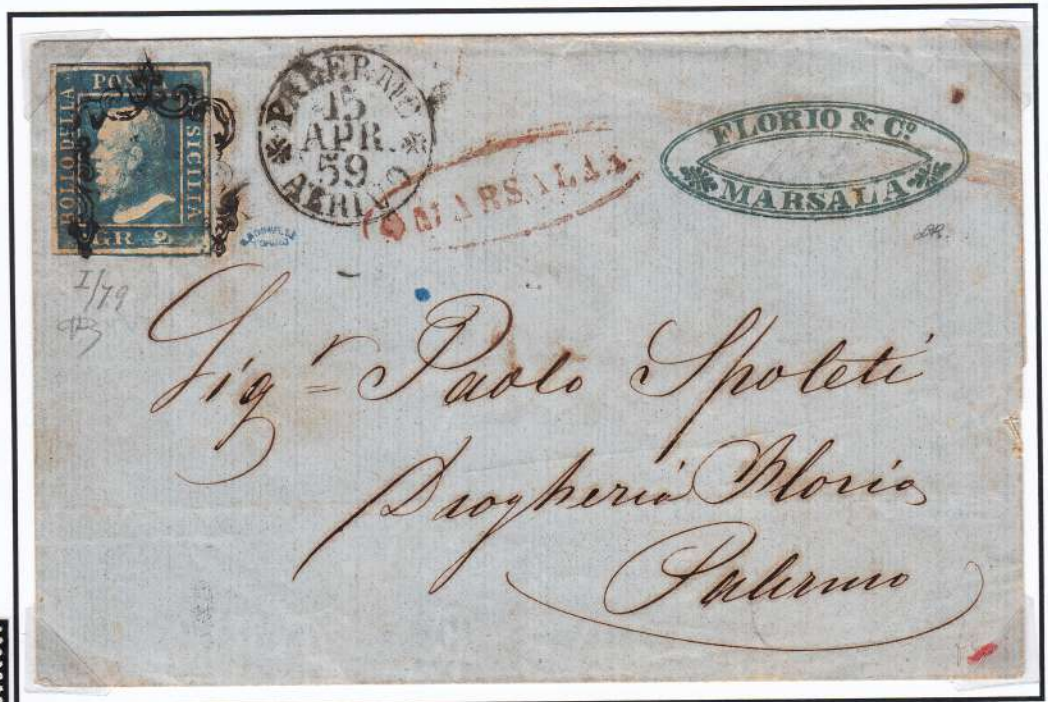 BOLLO DELLA
POSTA
SICILIA
GR. 2
PALERMO
15
APR.
59
ARRIVO
MARSALA
FLORIO & Cº
MARSALA
I/79
Sigʳ Paolo Spoleti
Drogheria Florio
Palermo